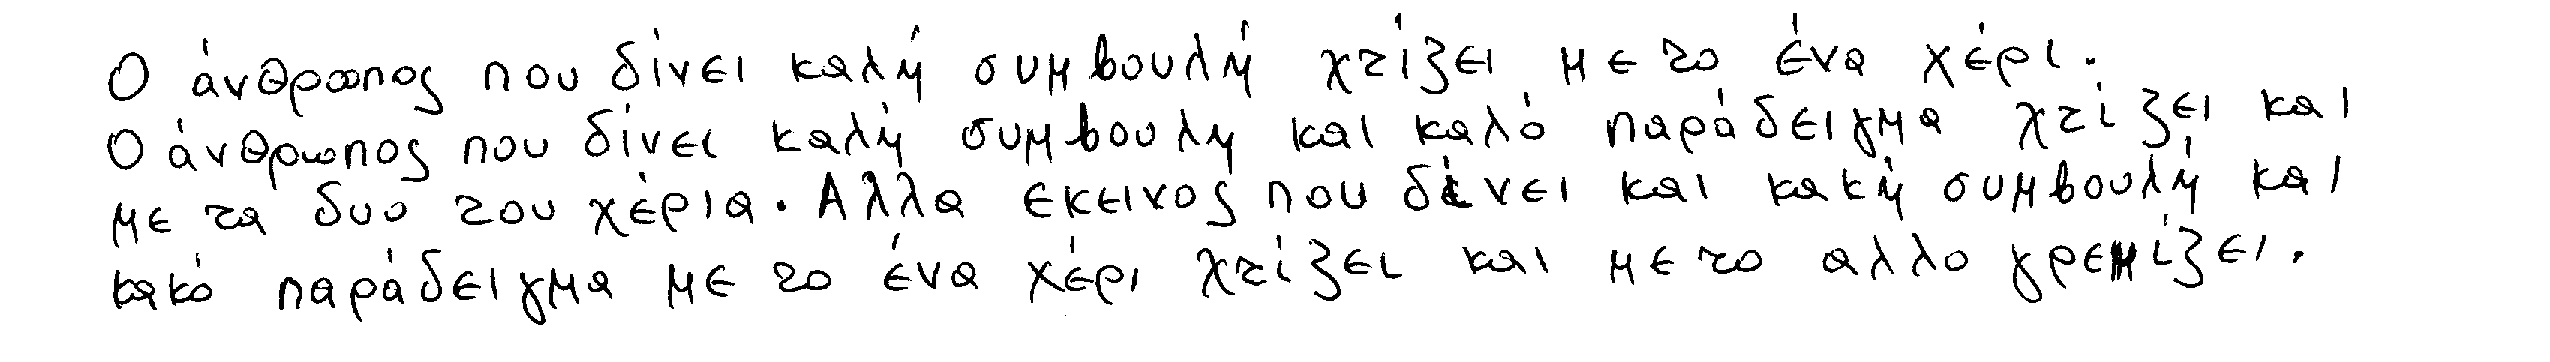 Ο άνθρωπος που δίνει καλή συμβουλή χτίζει με το ένα χέρι.
Ο άνθρωπος που δίνει καλή συμβουλη και καλό παράδειγμα χτίζει και
με τα δυο του χέρια. Αλλα εκεινος που δίνει και κακή συμβουλή και
κακό παράδειγμα με το ένα χέρι χτίζει και με το αλλο γρεμίζει.